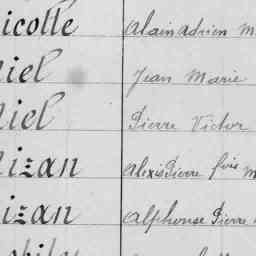 icolle Alain Adrien M
iel Jean Marie
iel Pierre Victor
izan Alexis Pierre fois M
izan Alphonse Pierre